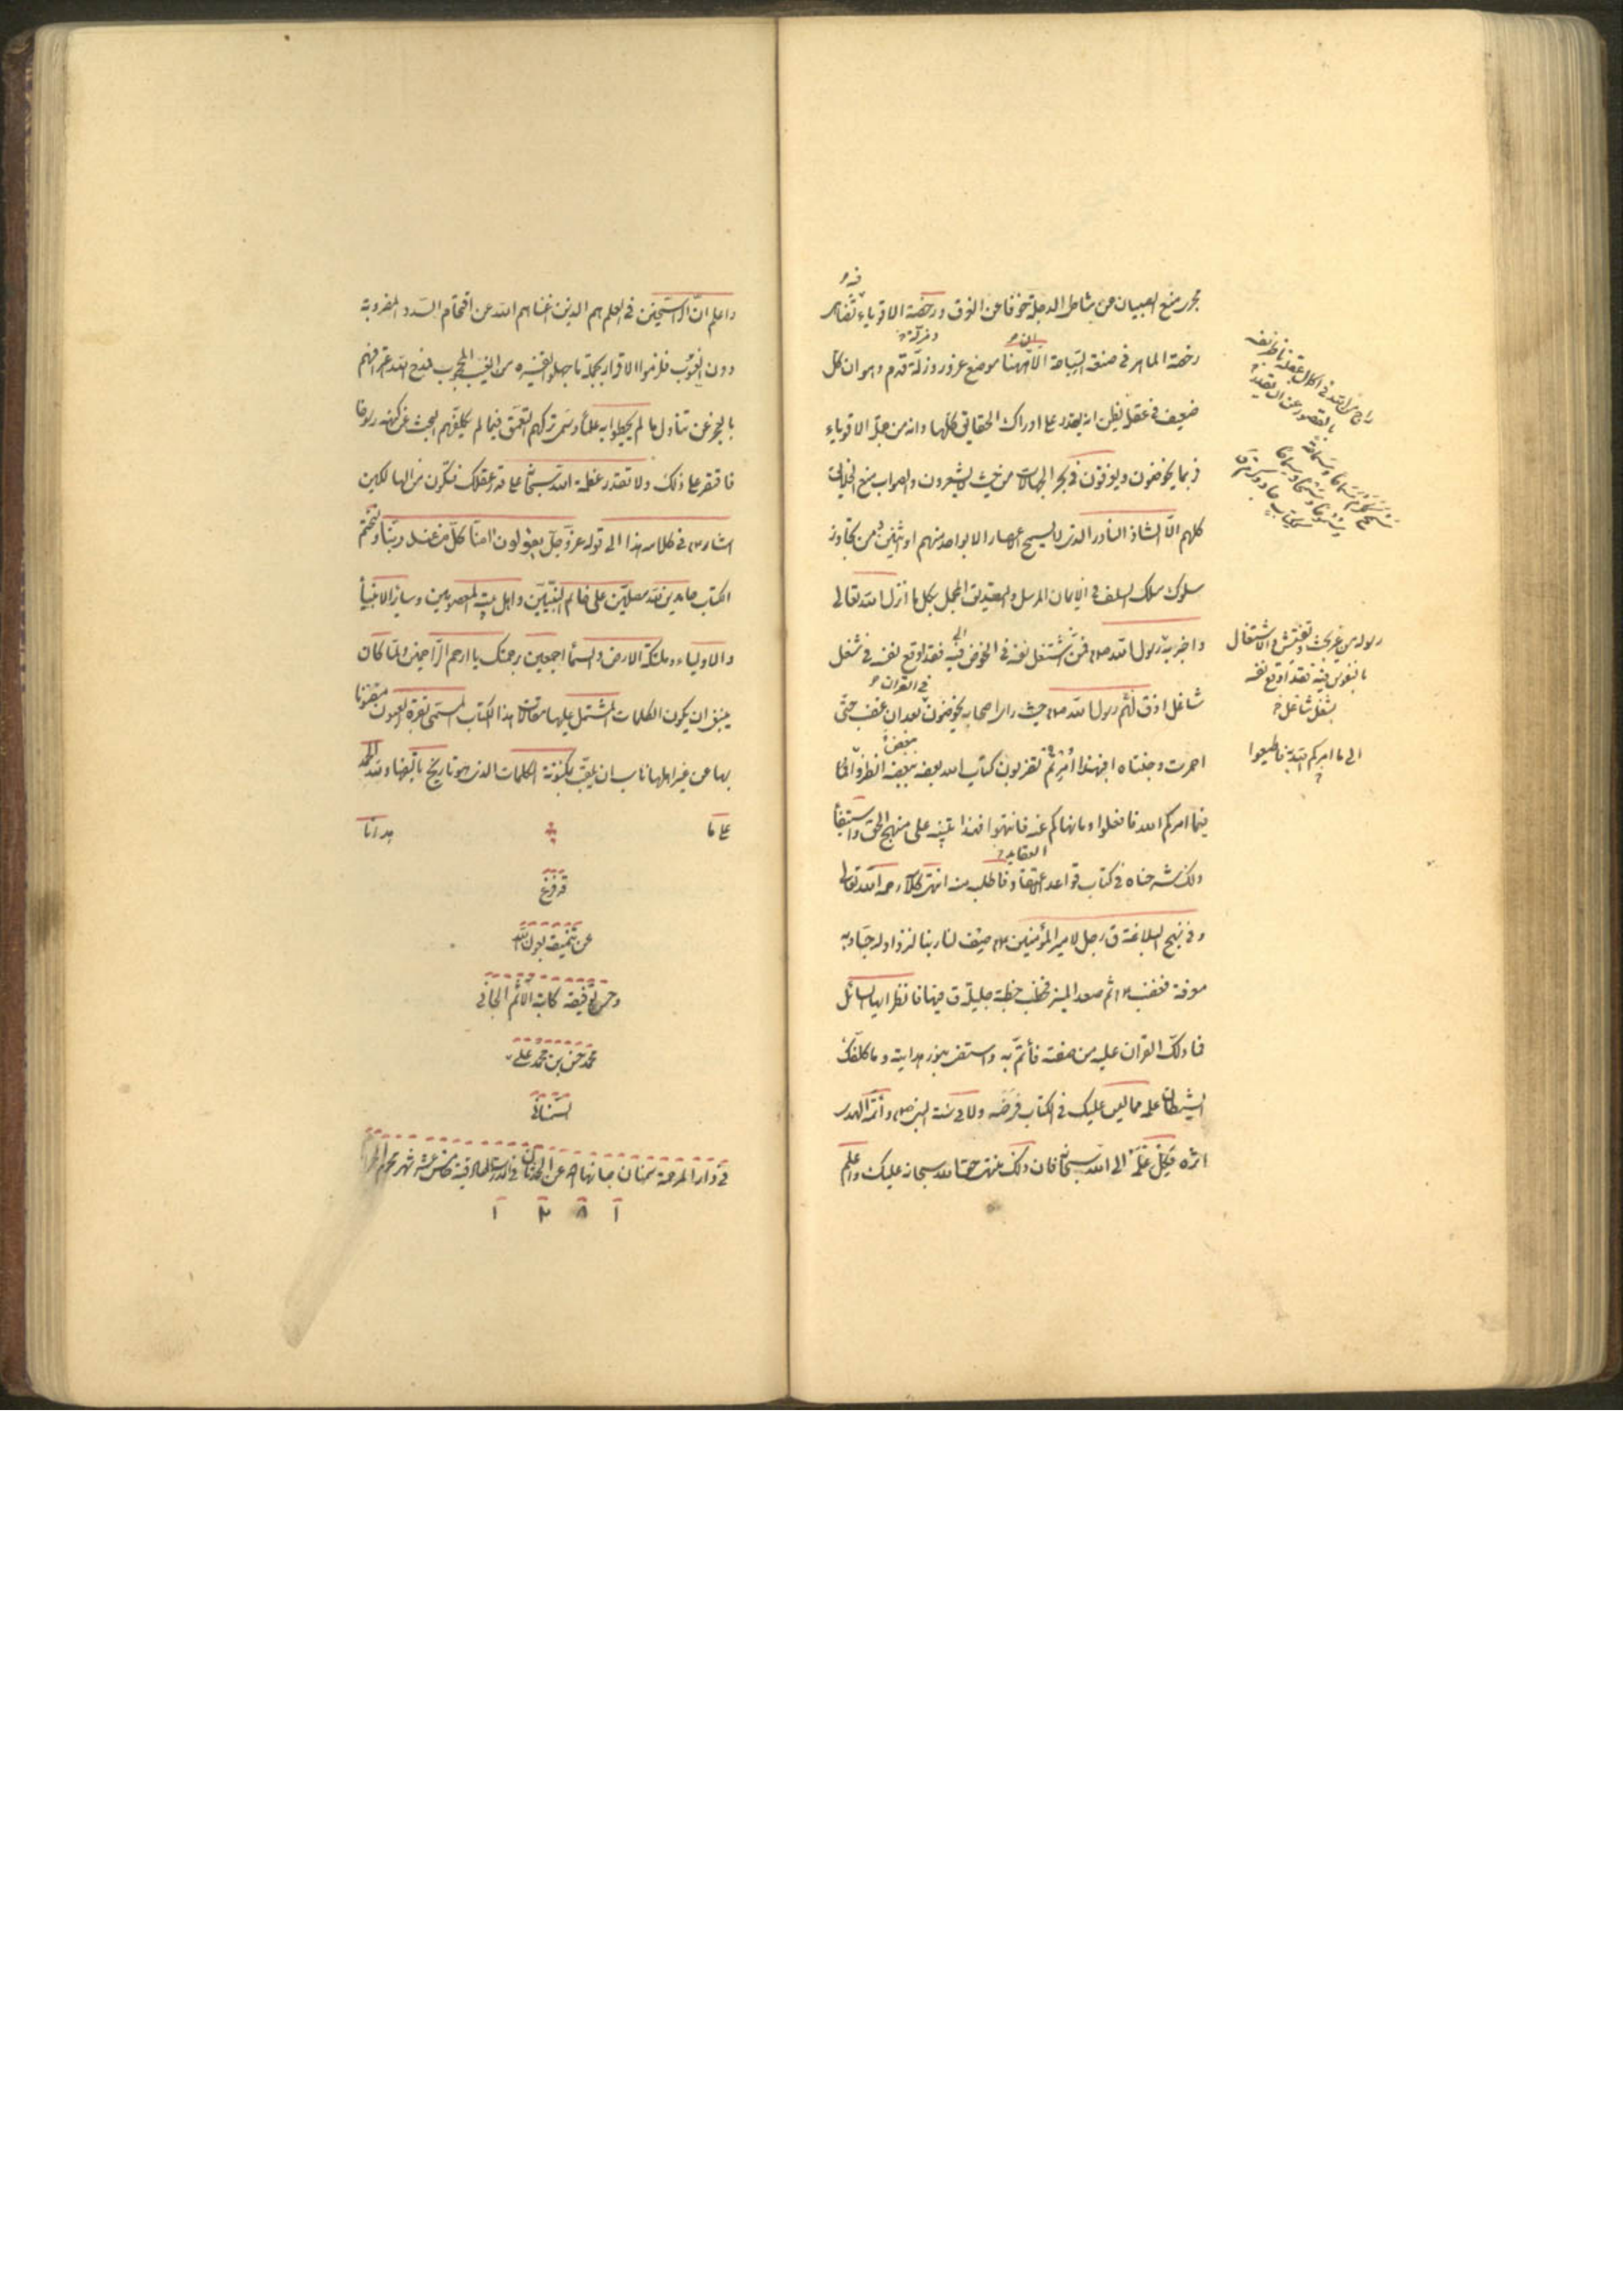 مجرى منع الصبيان من شاطئ الدجلة خوفا من الغرق ورخصة الاقوياء فيه تضاهى
رخصة الماهر فى صنعة السباحة الا ان ههنا موضع غرور ومزلة قدم وهو ان كل
ضعيف فى عقله يظن انه يقدر على ادراك الحقائق كلها وانه من جملة الاقوياء
فربما يخوضون ويغرقون فى بحر الجهالات من حيث لا يشعرون والصواب منع الخلق
كلهم الا الشاذ النادر الذى لا يسمح الاعصار الا بواحد منهم او اثنين من تجاوز
سلوك مسلك السلف فى الايمان المرسل والتصديق المجمل بكل ما انزل الله تعالى
واخبر به رسول الله ص فمن اشتغل نفسه فى الخوض فيه فقد اوقع نفسه فى شغل
شاغل اذ قال لهم رسول الله ص حيث راى اصحابه يخوضون بعد ان غضب حتى
احمرت وجنتاه افبهذا امرتم تضربون كتاب الله بعضه ببعض انظروا
فيما امركم الله فافعلوا وما نهاكم عنه فانتهوا فهذا تنبيه على منهج الحق واستيفاء
ذلك شرحناه فى كتاب قواعد العقايد فاطلب منه انتهى كلامه رحمه الله تعالى
وفى نهج البلاغة ق رجل لامير المؤمنين ع صف لنا ربنا لنزداد له حبا وبه
معرفة فغضب ع ثم صعد المنبر فخطب خطبة جليلة ق فيها فانظر ايها السائل
فما دلك القران عليه من صفته فأتم به واستضئ بنور هدايته وما كلفك
الشيطان علمه مما ليس عليك فى الكتاب فرضه ولا فى سنة النبى ص وائمة الهدى
اثره فكل علمه الى الله سبحانه فان ذلك منتهى حق الله سبحانه عليك واعلم
رسوله من غير بحث وتفتيش والاشتغال
بالخوض فيه فقد اوقع نفسه
بشغل شاغل
الى ما امركم الله به فاطيعوا
واعلم ان الراسخين فى العلم هم الذين اغناهم الله عن اقتحام السدد المضروبة
دون الغيوب فلزموا الاقرار بجملة ما جهلوا تفسيره من الغيب المحجوب فمدح الله اعترافهم
بالعجز عن تناول ما لم يحيطوا به علما وسمى تركهم التعمق فيما لم يكلفهم البحث عن كنهه رسوخا
فاقتصر على ذلك ولا تقدر عظمة الله سبحانه على قدر عقلك فتكون من الهالكين
اشار ع فى كلامه هذا الى قوله عز وجل يقولون امنا كل من عند ربنا ولنختم
الكتاب حامدين لله مصلين على خاتم النبيين واهل بيته المعصومين وسائر الانبياء
والاولياء وملائكة الارض والسماء اجمعين برحمتك يا ارحم الراحمين ولما كان
ينبغى ان يكون الكلمات المشتمل عليها مقالات هذا الكتاب المسمى بقرة العيون مضنونا
بها عن غير اهلها ناسب ان يلقب بمكنونة الكلمات الذى هو تاريخ باتمامها ولله الحمد
على ما هدانا
قد فرغ
عن تنميقه بعون الله
كاتبه الآثم الجانى
محمد حسن بن محمد على
السمنانى
فى دار المرحمة سمنان صانها الله عن الحدثان فى شهر محرم الحرام
١ ٢ ٨ ١